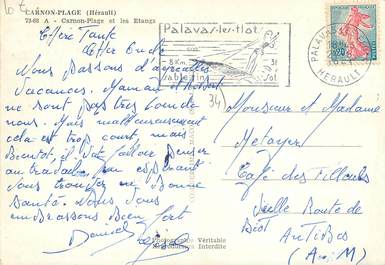 CARNON-PLAGE (Hérault)
73-68 A - Carnon-Plage et les Etangs
Chère Tante
Cher Oncle
Nous passons d'agréables
vacances. Maman et
ne sont pas très
nus. Mais malheureusement
cela est trop court, mais
Bientôt, il va falloir penser
au travail. En espérant
vous trouver en Bonne
Santé. Nous vous
embrassons Bien fort
Daniel
Palavas-les-flots
8 Km.
sable fin
PALAVAS
HERAULT
0,20
34
Monsieur et Madame
Metayer
Café des Tilleuls
Vieille Route de
Biot
ANTIBES
(A.M)
Photographie Véritable
Reproduction Interdite